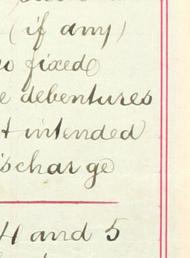 (if any)
fixed
debentures
intended
ischarge
4 and 5